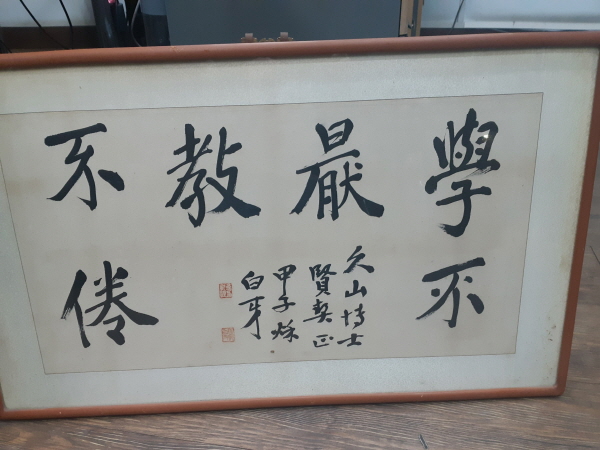 學不
厭
教
不倦
久山博士
賢契正
甲子秌
白牙